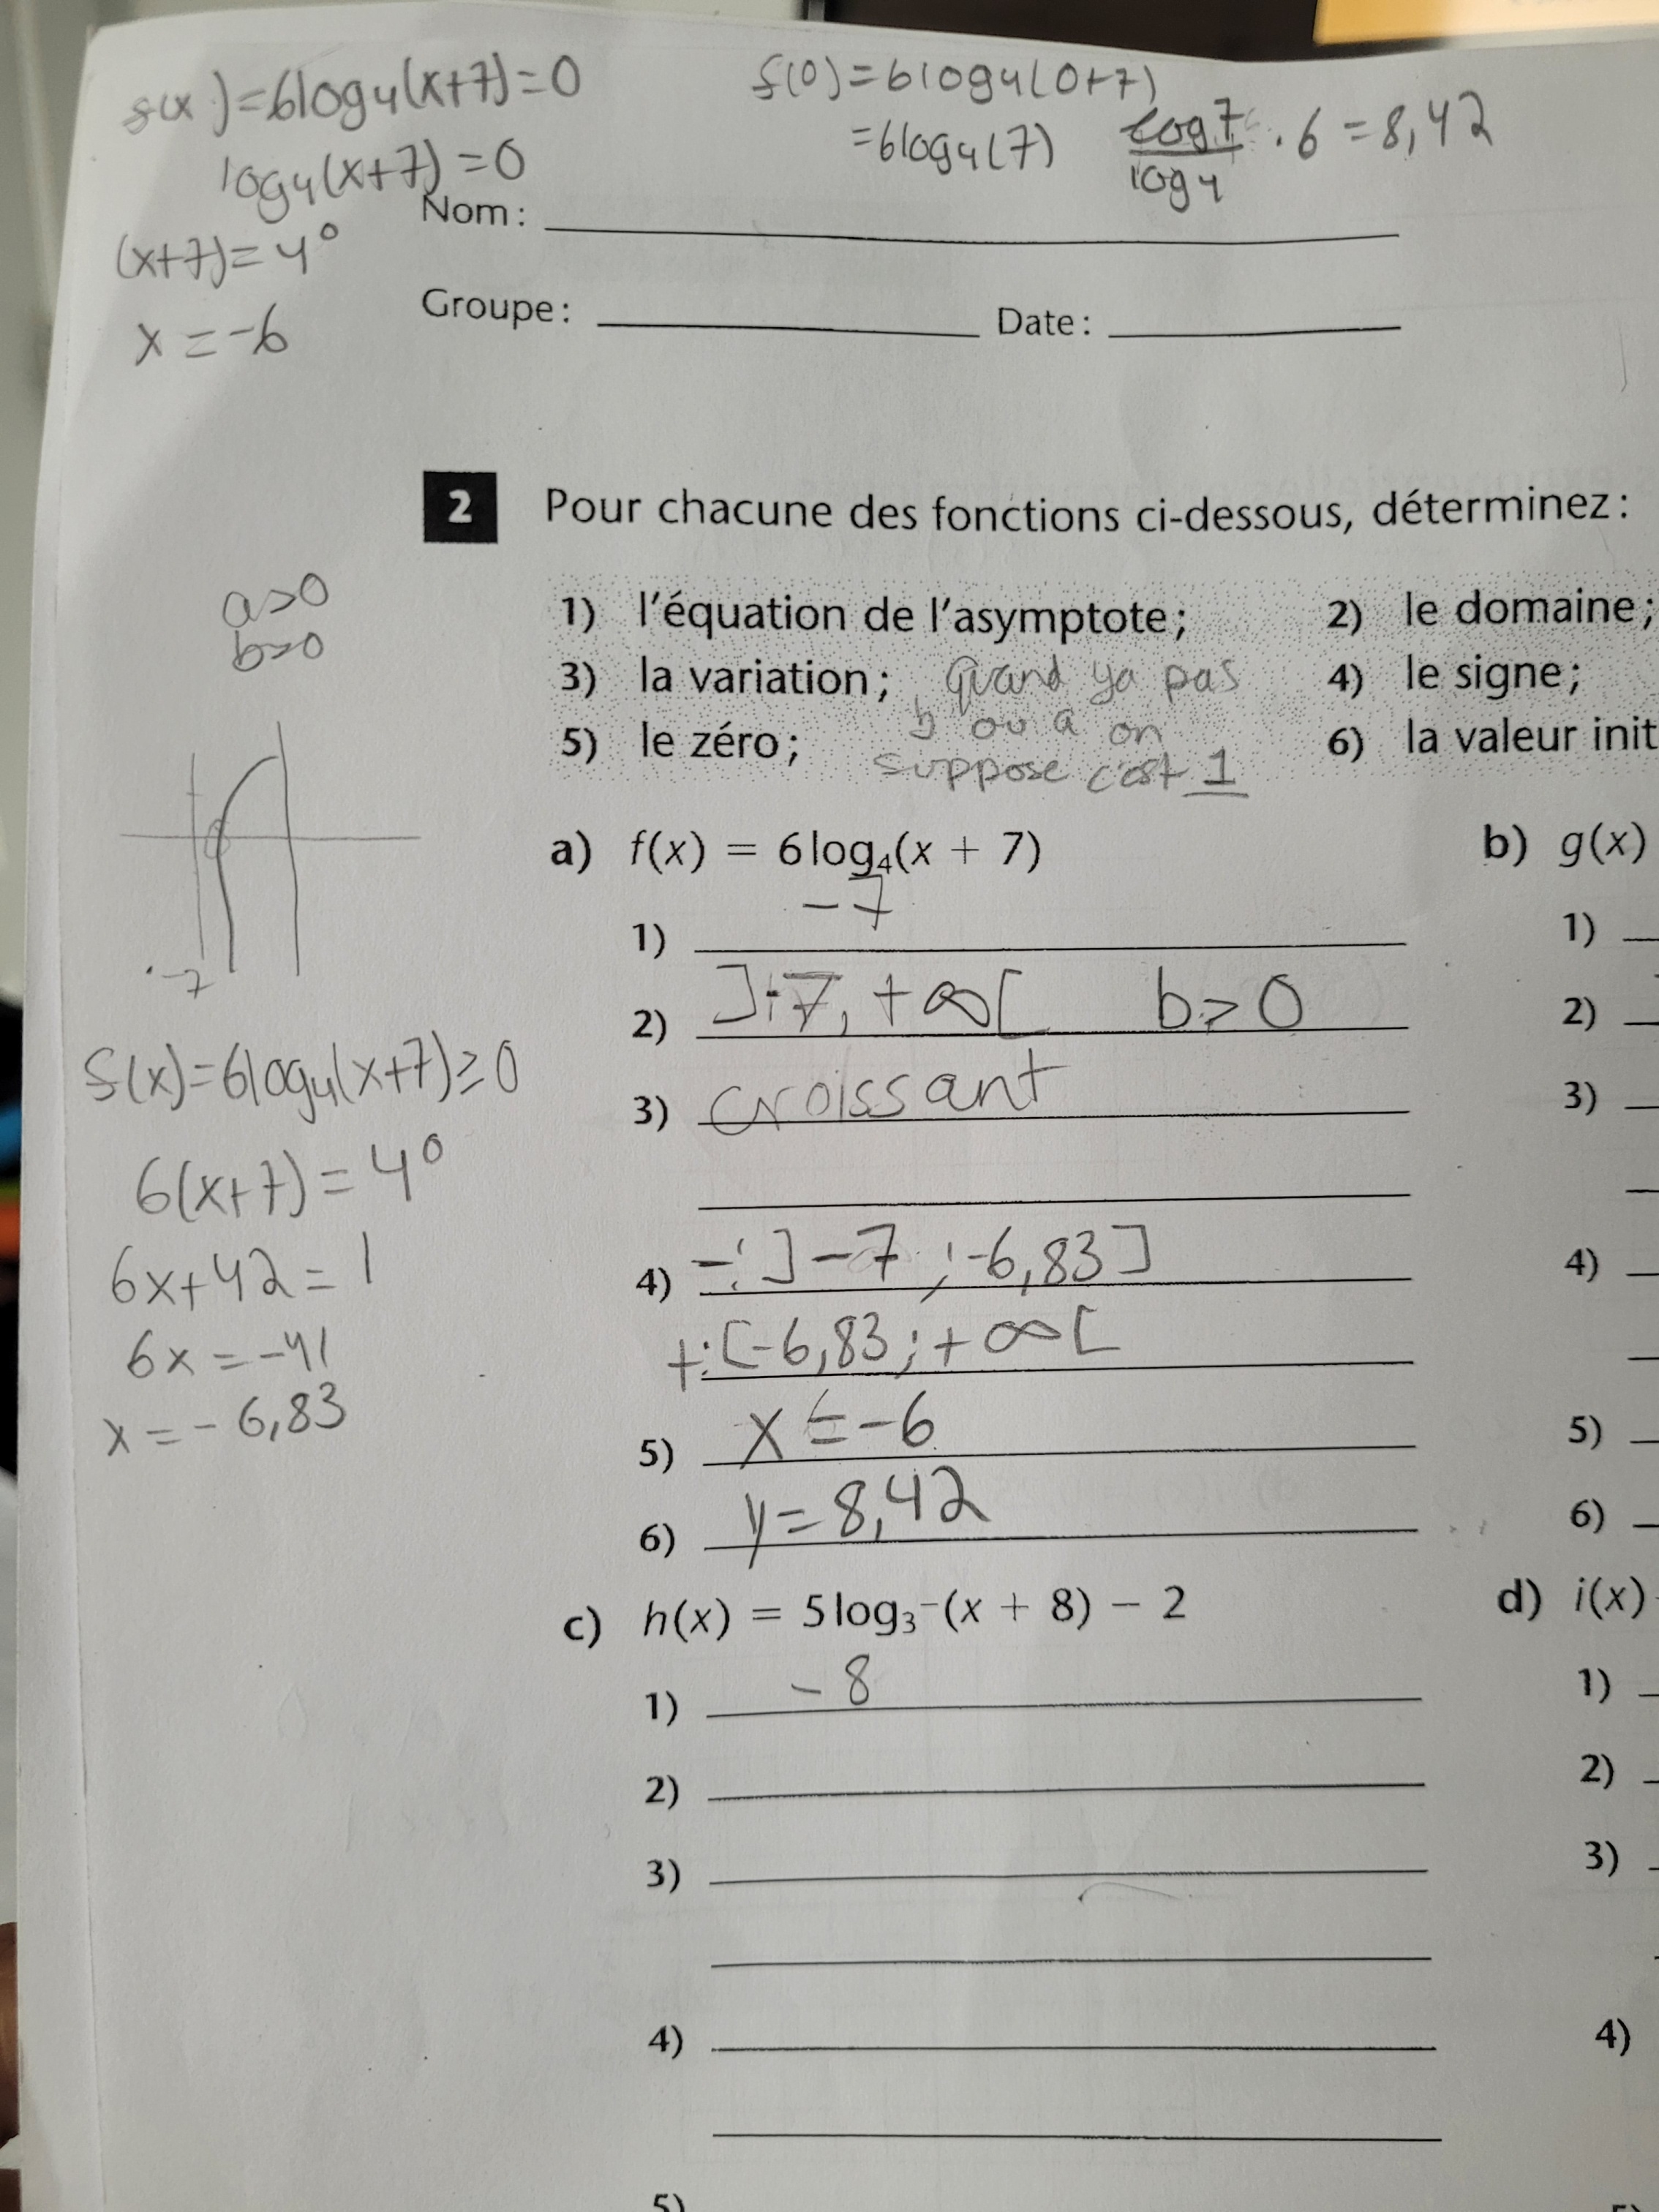 f(x) = 6log₄(x+7) = 0
log₄(x+7) = 0
(x+7) = 4⁰
x = -6
f(0) = 6log₄(0+7)
= 6log₄(7) log7/log4 · 6 = 8,42
Nom :
Groupe : Date :
2 Pour chacune des fonctions ci-dessous, déterminez :
1) l'équation de l'asymptote ; 2) le domaine ;
3) la variation ; 4) le signe ;
5) le zéro ; 6) la valeur init
Quand ya pas
b ou a on
suppose c'est 1
a>0
b>0
-7
f(x) = 6log₄(x+7) ≥ 0
6(x+7) = 4⁰
6x+42 = 1
6x = -41
x = - 6,83
a) f(x) = 6 log₄(x + 7)
1) -7
2) ]-7, +∞[ b > 0
3) croissant
4) -: ]-7 ; -6,83]
+: [-6,83 ; +∞[
5) x = -6
6) y = 8,42
b) g(x)
1)
2)
3)
4)
5)
6)
c) h(x) = 5 log₃ ⁻(x + 8) − 2
1) - 8
2)
3)
4)
5)
d) i(x)
1)
2)
3)
4)